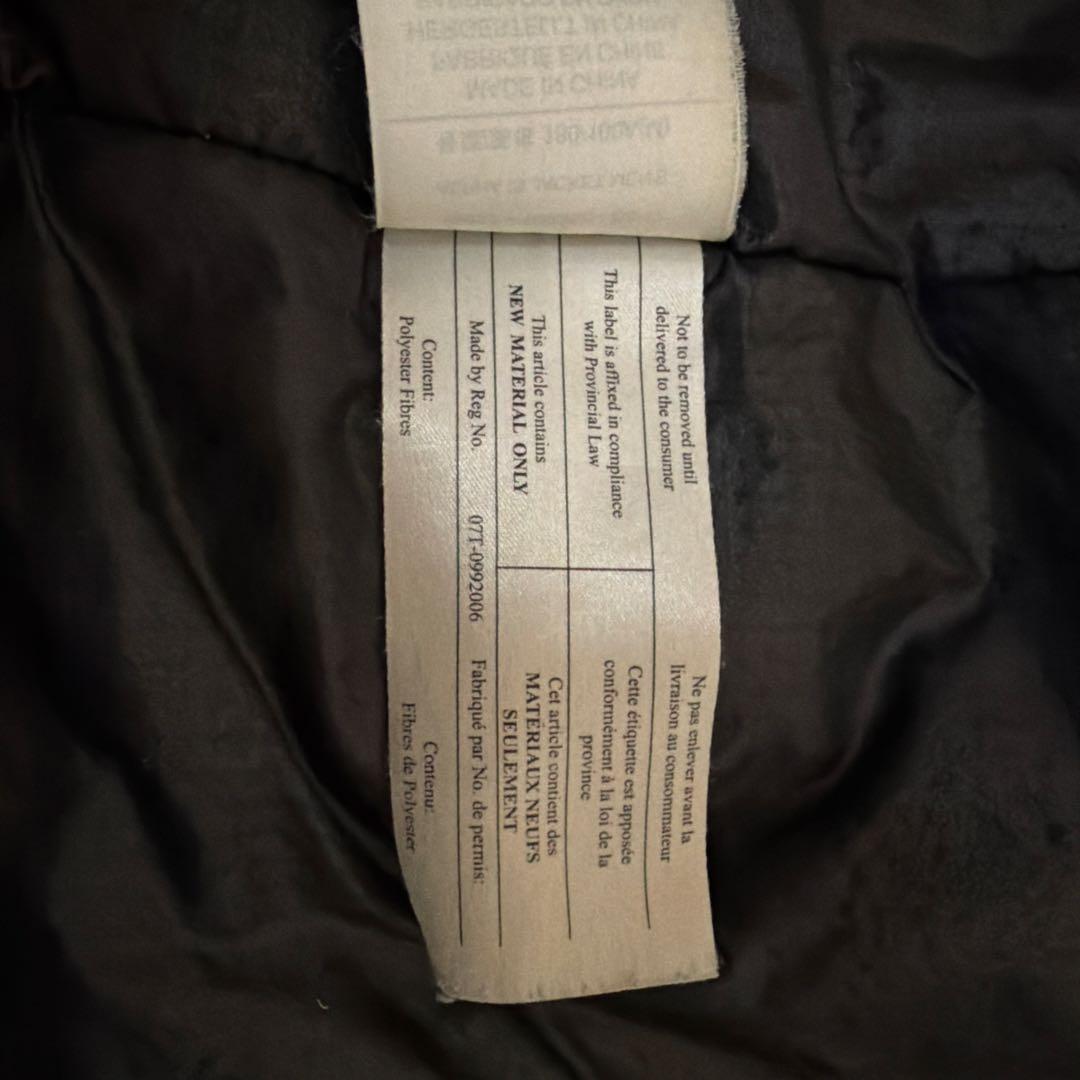 MADE IN CHINA
FABRIQUE EN CHINE
Not to be removed until
delivered to the consumer
Ne pas enlever avant la
livraison au consommateur
This label is affixed in compliance
with Provincial Law
Cette étiquette est apposée
conformément à la loi de la
province
This article contains
NEW MATERIAL ONLY
Cet article contient des
MATÉRIAUX NEUFS
SEULEMENT
Made by Reg No. 07T-0992006 Fabriqué par No. de permis:
Content:
Polyester Fibres
Contenu:
Fibres de Polyester